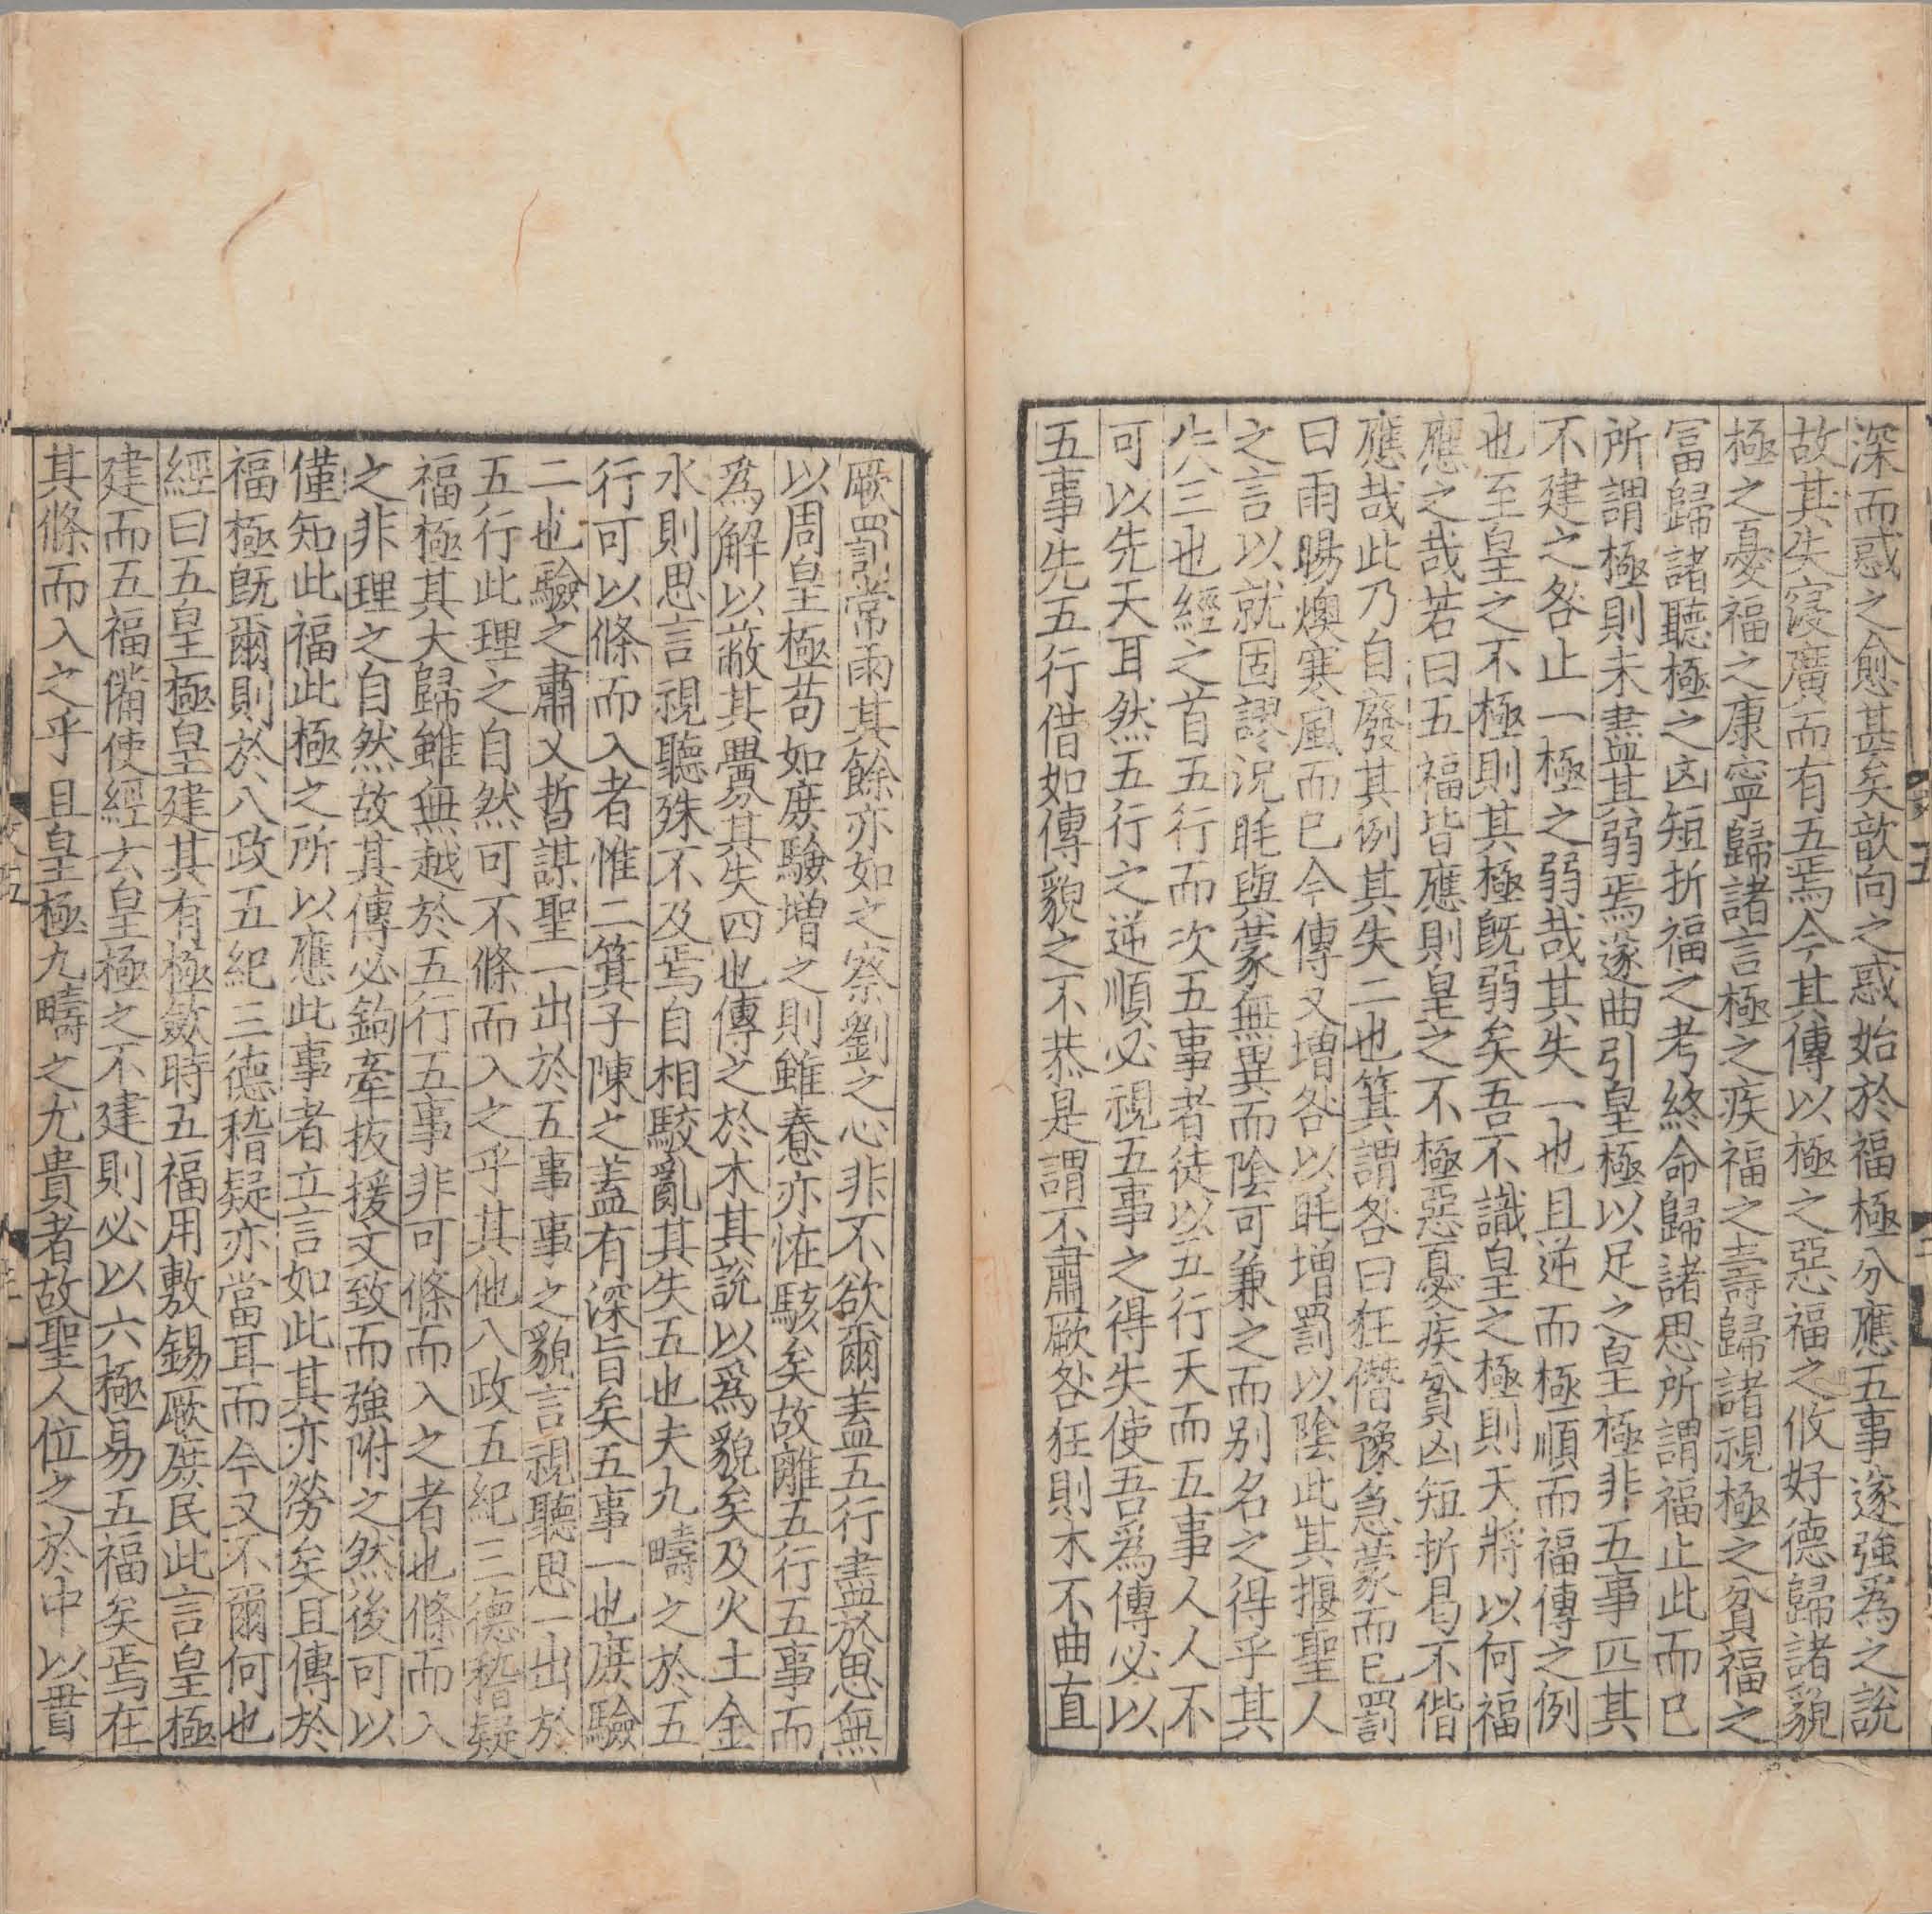 深而惑之愈甚矣歆向之惑始於福極分應五事遂強爲之說
故其失寖廣而有五焉今其傳以極之惡福之攸好德歸諸貌
極之憂福之康寧歸諸言極之疾福之壽歸諸視極之貧福之
冨歸諸聽極之凶短折福之考終命歸諸思所謂福止此而已
所謂極則未盡其弱焉遂曲引皇極以足之皇極非五事匹其
不建之咎止一極之弱哉其失一也且逆而極順而福傳之例
也至皇之不極則其極旣弱矣吾不識皇之極則天將以何福
應之哉若曰五福皆應則皇之不極惡憂疾貧凶短折曷不偕
應哉此乃自廢其例其失二也箕謂咎曰狂僭豫急蒙而已罰
曰雨暘燠寒風而已今傳又增咎以眊增罰以陰此其揠聖人
之言以就固謬况眊與蒙無異而陰可兼之而别名之得乎其
失三也經之首五行而次五事者徒以五行天而五事人人不
可以先天耳然五行之逆順必視五事之得失使吾爲傳必以
五事先五行借如傳貌之不恭是謂不肅厥咎狂則木不曲直
厥罰常雨其餘亦如之察劉之心非不欲爾盖五行盡於思無
以周皇極苟如庶驗增之則雖惷亦怪駭矣故離五行五事而
爲解以蔽其釁其失四也傳之於木其說以爲貌矣及火土金
水則思言視聽殊不及焉自相駮亂其失五也夫九疇之於五
行可以條而入者惟二箕子陳之盖有深旨矣五事一也庶驗
二也驗之肅乂哲謀聖一出於五事事之貌言視聽思一出於
五行此理之自然可不條而入之乎其他八政五紀三德稽疑
福極其大歸雖無越於五行五事非可條而入之者也條而入
之非理之自然故其傳必鉤牽扳援文致而強附之然後可以
僅知此福此極之所以應此事者立言如此其亦勞矣且傳於
福極旣爾則於八政五紀三德稽疑亦當耳而今又不爾何也
經曰五皇極皇建其有極斂時五福用敷錫厥庶民此言皇極
建而五福備使經云皇極之不建則必以六極易五福矣焉在
其條而入之乎且皇極九疇之尤貴者故聖人位之於中以貫